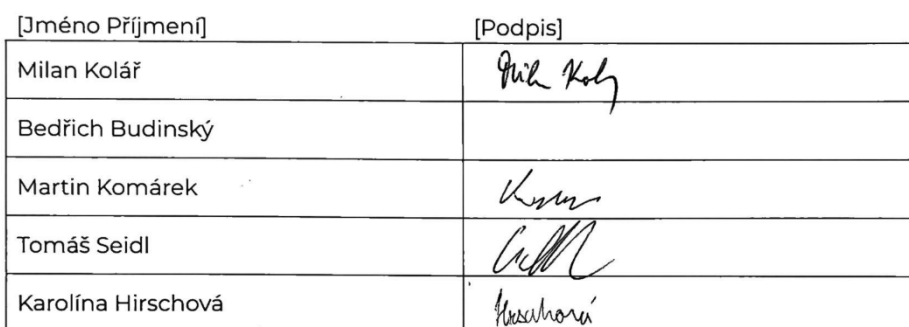 [Jméno Příjmení] [Podpis]
Milan Kolář Milan Kolář
Bedřich Budinský
Martin Komárek
Tomáš Seidl
Karolína Hirschová Hirschová